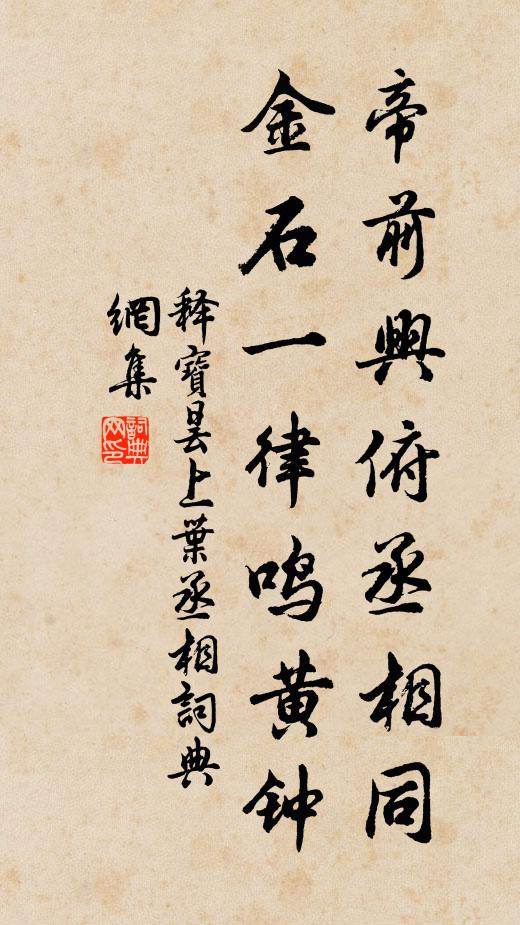 帝前興俯丞相同
金石一律鸣黄钟
释寶昙上葉丞相詞典
網集
詞典网印